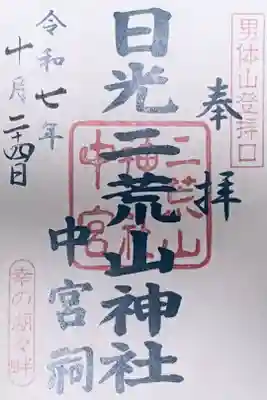 男体山登拝口
奉拝
日光二荒山神社
中宮祠
二荒山
中宮
令和七年
十月二十四日
幸の湖々畔